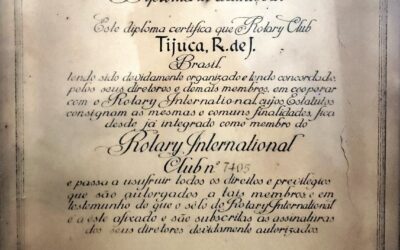 Este diploma certifica que o Rotary Club
Tijuca, R. de J.
Brasil
tendo sido devidamente organizado e tendo concordado,
pelos seus diretores e demais membros, em cooperar
com o Rotary International, cujos Estatutos
consignam as mesmas e comuns finalidades, fica
desde já integrado como membro do
Rotary International
Club nº 7405
e passa a usufruir todos os direitos e previlegios
que são outorgados a tais membros; e em
testemunho do que o sêlo de Rotary International
é a este afixado e são subscritas as assinaturas
dos seus diretores devidamente autorizados.